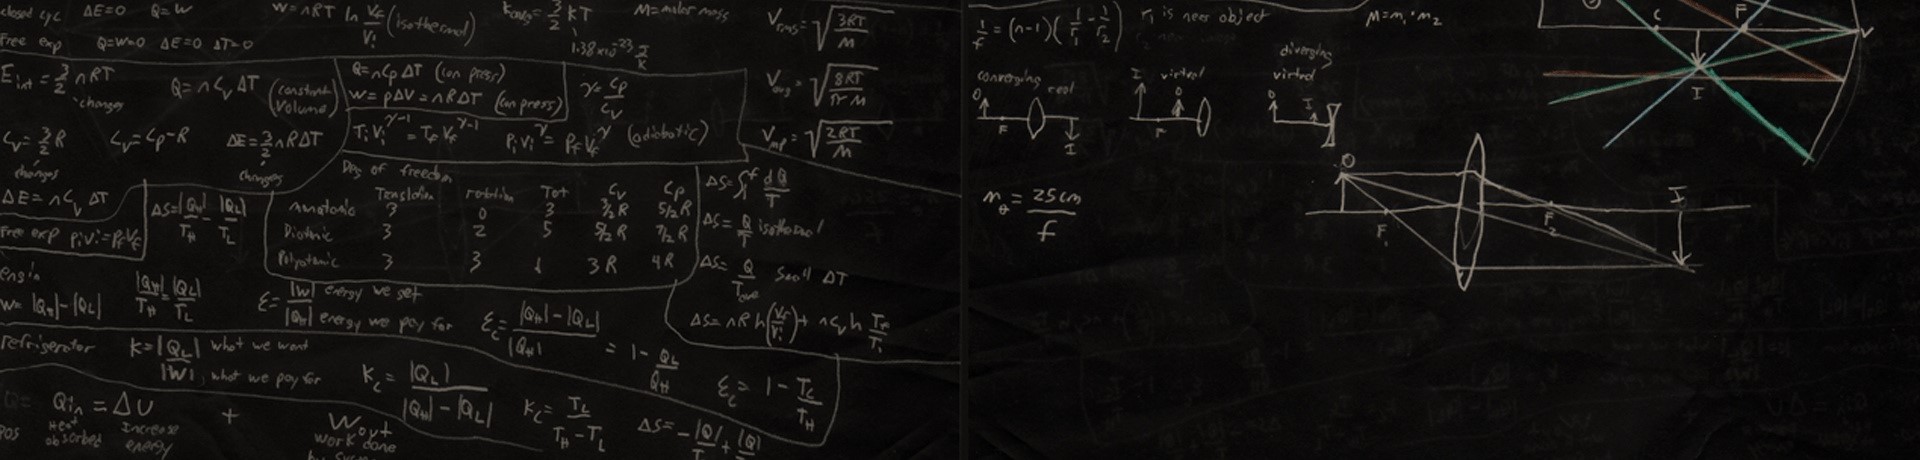 closed cyc ΔE=0 Q=W
W=nRT ln Vf/Vi (isothermal)
Kavg=3/2 KT
1.38x10^-23 J/K
M=molar mass
Vrms=√(3RT/M)
Free exp Q=W=0 ΔE=0 ΔT=0
Eint=3/2 nRT
changes
Q=nCvΔT (constant volume)
Q=nCpΔT (con press)
W=pΔV=nRΔT (con press)
γ=Cp/Cv
Vavg=√(8RT/πM)
Cv=3/2 R
changes
Cv=Cp-R
ΔE=3/2 nRΔT
changes
TiVi^γ-1=TfVf^γ-1
piVi^γ=PfVf^γ (adiabatic)
Vmp=√(2RT/M)
ΔE=nCvΔT
Free exp piVi=PfVf
ΔS=|QH|/TH-|QL|/TL
Deg of freedom
Translation rotation Tot Cv Cp
Monatomic 3 0 3 3/2R 5/2R
Diatomic 3 2 5 5/2R 7/2R
Polyatomic 3 3 6 3R 4R
ΔS=∫ dQ/T
ΔS=Q/T isothermal
ΔS=Q/Tave Small ΔT
ΔS=nR ln(Vf/Vi)+nCv ln Tf/Ti
engin
W=|QH|-|QL|
|QH|/TH=|QL|/TL
ε=|W|/|QH| energy we get
energy we pay for
εc=|QH|-|QL|/|QH| = 1-QL/QH
εc=1-TL/TH
refrigerator K=|QL|/|W| what we want
what we pay for
Kc=|QL|/|QH|-|QL|
Kc=TL/TH-TL
ΔS=-|Q|/T+|Q|
Qin=ΔU + Wout
Heat absorbed
Increase energy
work done
1/f=(n-1)(1/r1-1/r2)
r1 is near object
M=m1·m2
converging real
O F I
I virtual
F O
diverging
virtual
O I
mθ=25cm/f
O F1 F2 I
C F V
I